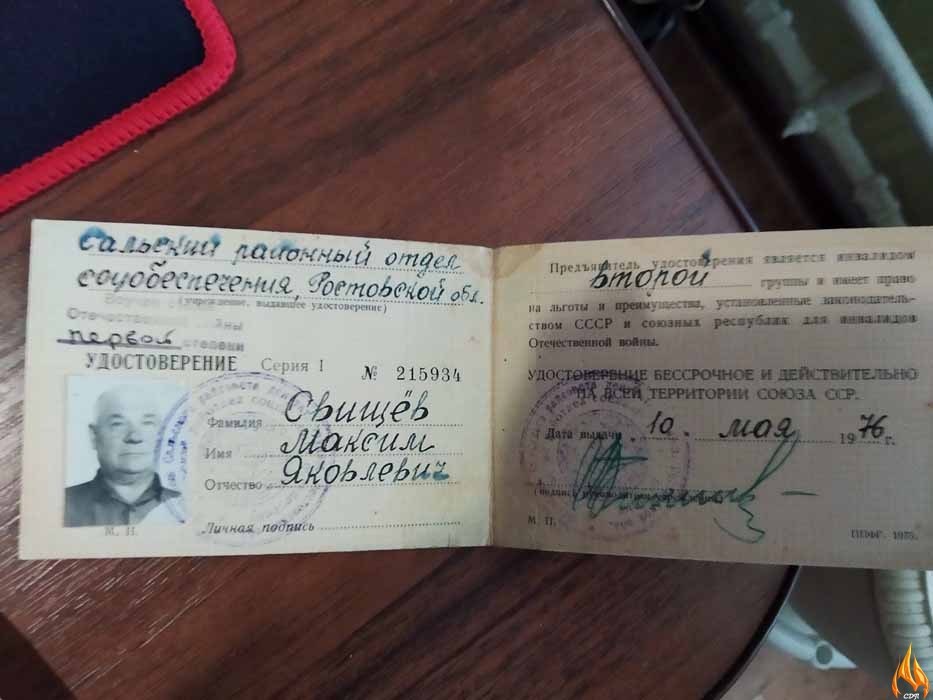 Сальский районный отдел
соцобеспечения, Ростовской обл.
(учреждение, выдавшее удостоверение)
Вручен
Отечественной войны
первой степени
УДОСТОВЕРЕНИЕ Серия I № 215934
Фамилия Свищёв
Имя Максим
Отчество Яковлевич
Личная подпись
М. П.
Предъявитель удостоверения является инвалидом
второй группы и имеет право
на льготы и преимущества, установленные законодатель-
ством СССР и союзных республик для инвалидов
Отечественной войны.
УДОСТОВЕРЕНИЕ БЕССРОЧНОЕ И ДЕЙСТВИТЕЛЬНО
НА ВСЕЙ ТЕРРИТОРИИ СОЮЗА ССР.
Дата выдачи 10. мая 1976 г.
(подпись руководителя учреждения)
М. П.
1975.
CDR